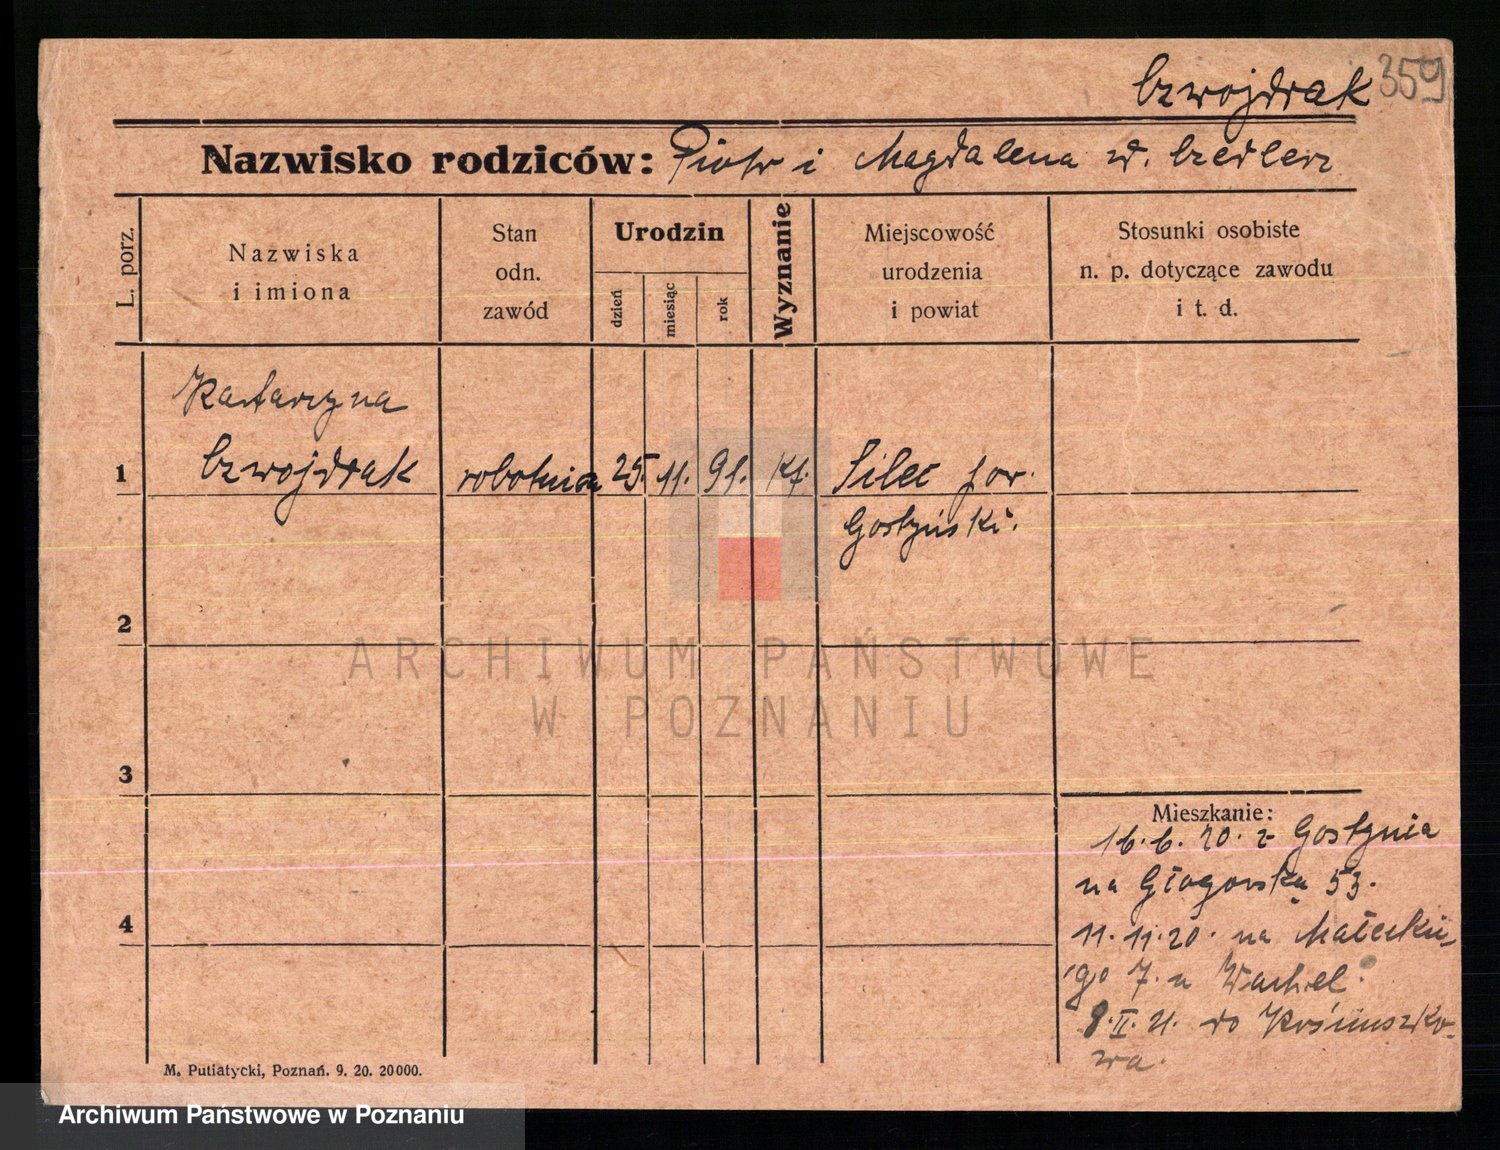 Czwojdrak 359
Nazwisko rodziców: Piotr i Magdalena z d.
L. porz.
Nazwiska
i imiona
Stan
odn.
zawód
Urodzin
dzień
miesiąc
rok
Wyznanie
Miejscowość
urodzenia
i powiat
Stosunki osobiste
n. p. dotyczące zawodu
i t. d.
Katarzyna
1 Czwojdrak robotnica 25. 11. 91. Kt. Silec pow.
Gostyński.
2
3
4
Mieszkanie:
16.6.20. z Gostynia
na Głogowską 53.
11.11.20. na Małeckie-
go 7. u
8.II.21. do
wa.
M. Putiatycki, Poznań. 9. 20. 20000.
ARCHIWUM PAŃSTWOWE
W POZNANIU
Archiwum Państwowe w Poznaniu